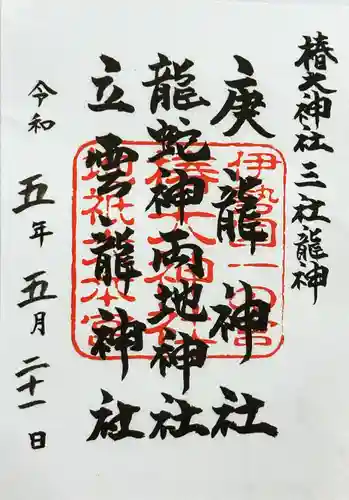 椿大神社三社龍神
庚龍神社
龍蛇神両地神社
立雲龍神社
令和五年五月二十一日
伊勢国一の宮
椿大神社
地祇大本宮